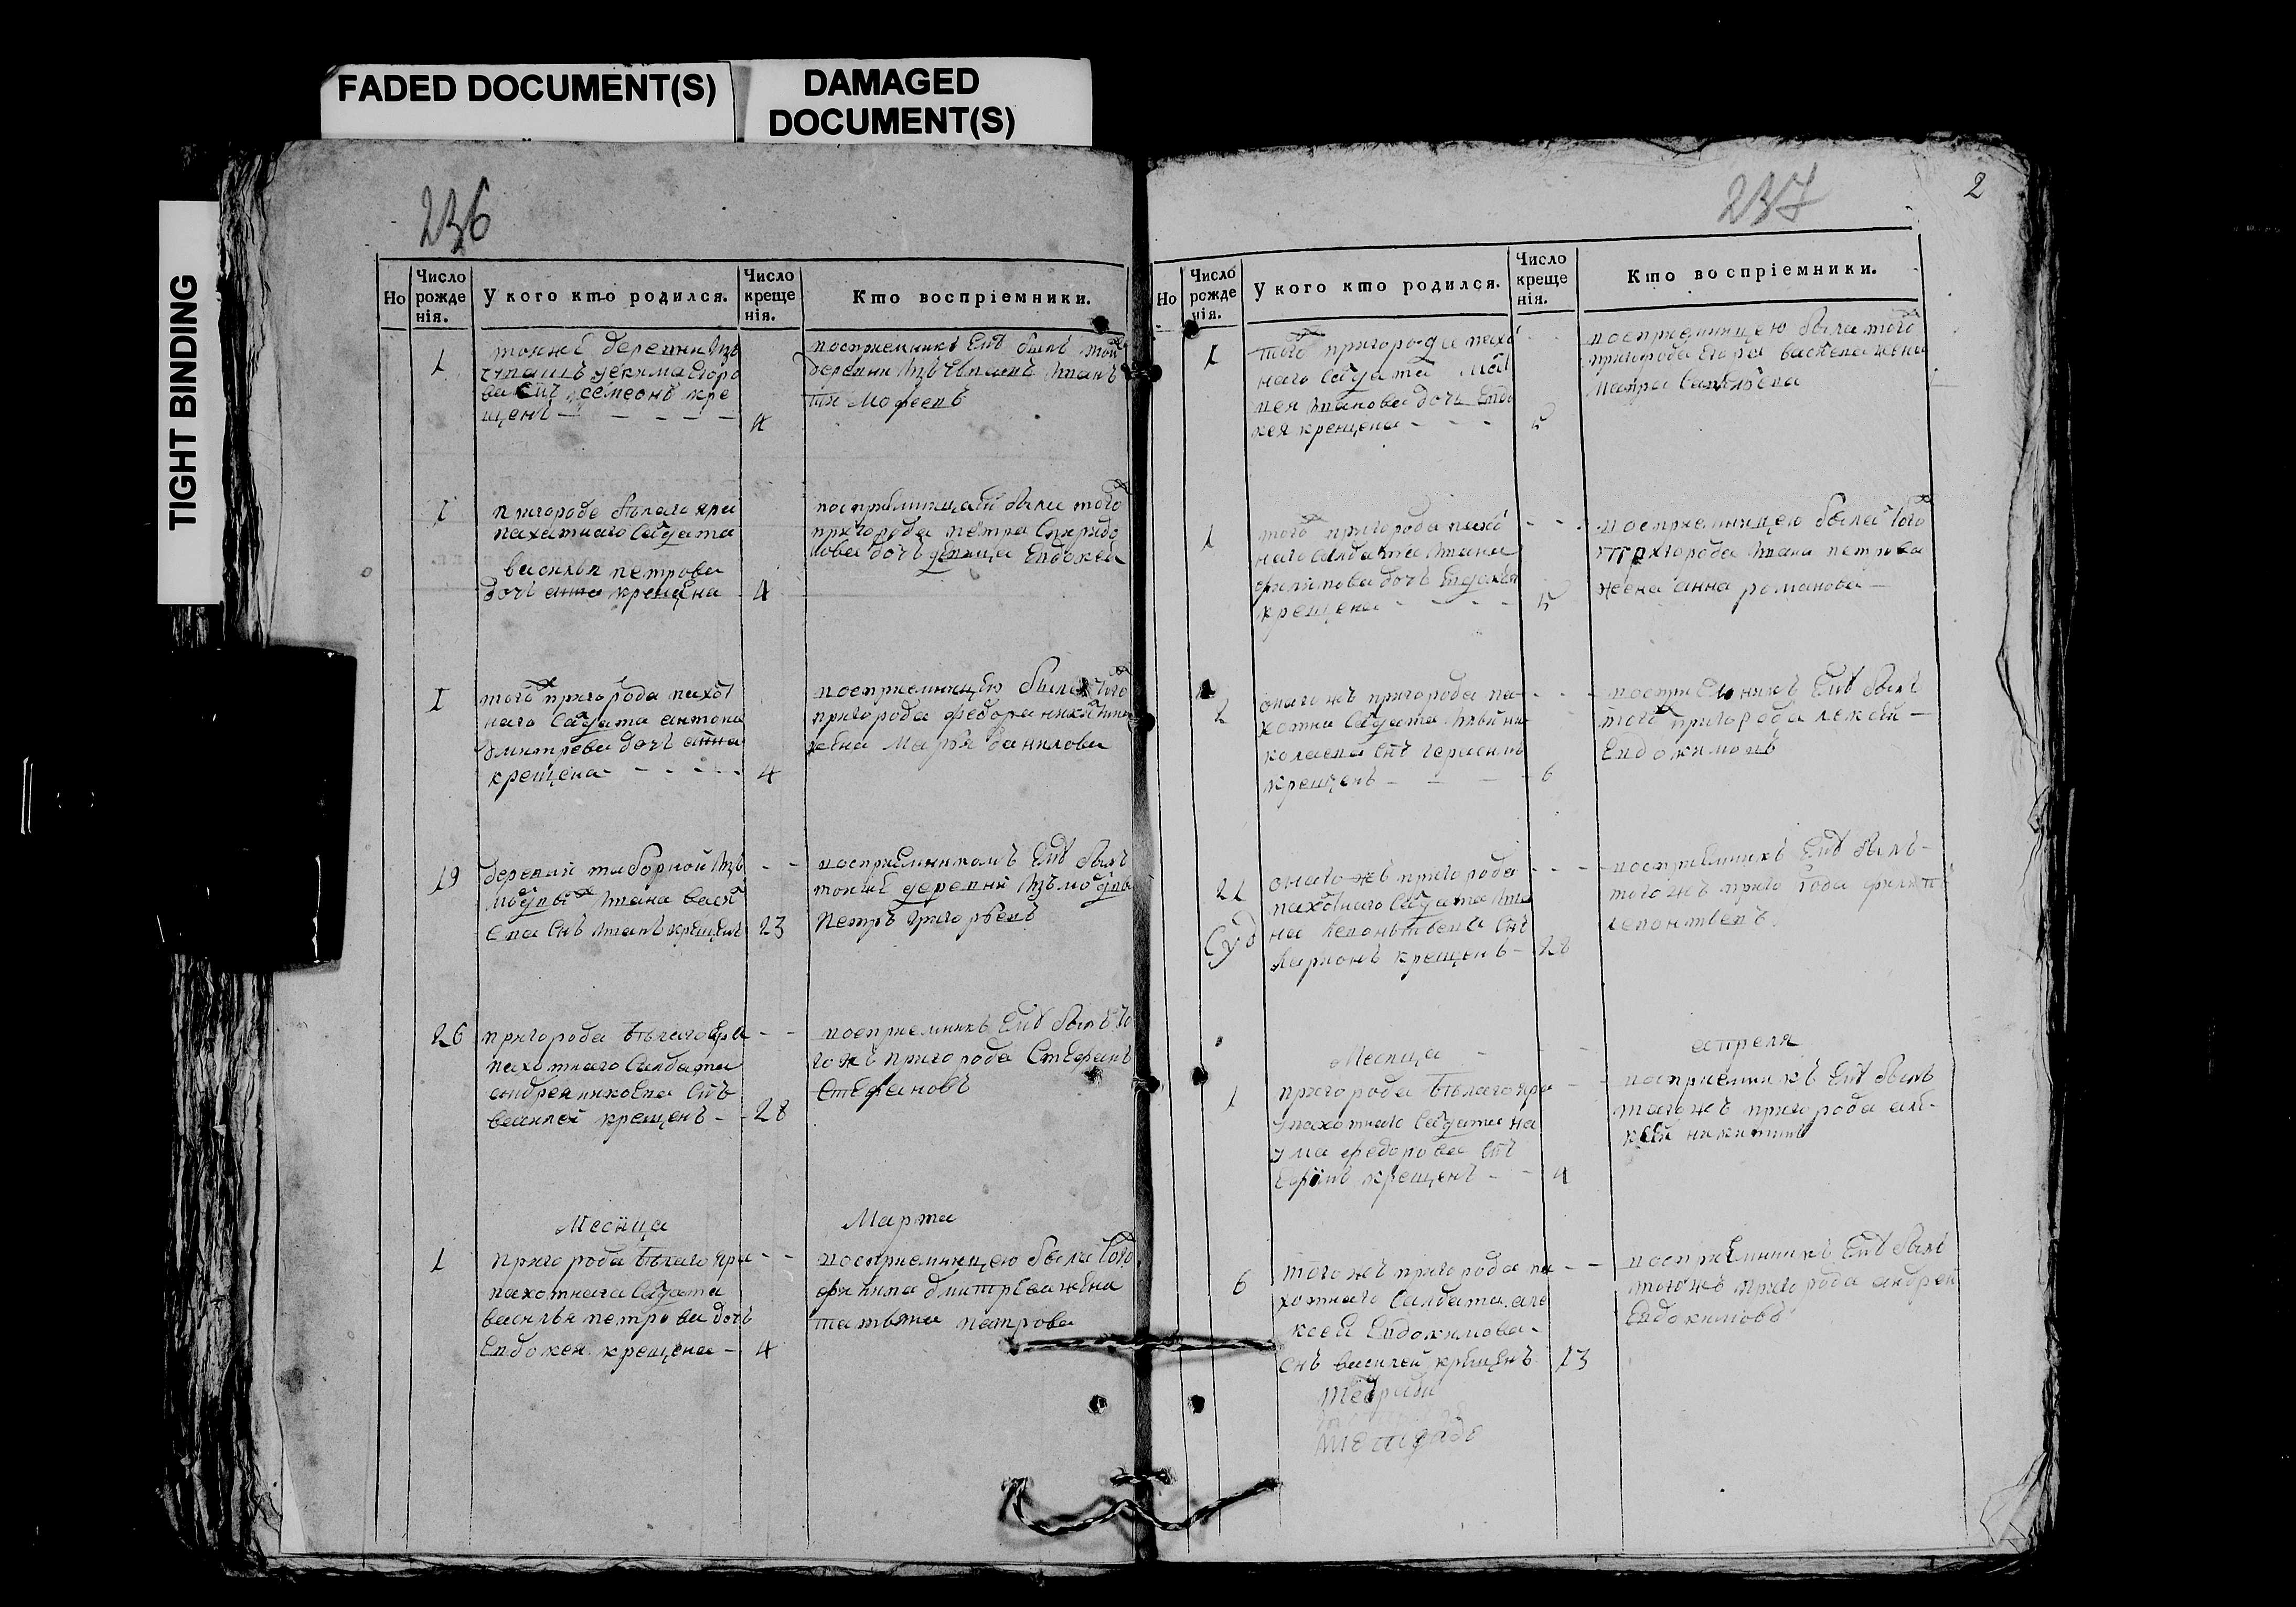 FADED DOCUMENT(S)
DAMAGED
DOCUMENT(S)
TIGHT BINDING
236
Но
Число рожде нія.
У кого кто родился.
Число креще нія.
Кто воспріемники.
1
тояжъ деревни изъ
ва снъ семеонъ кре
щенъ
4
восприемникъ ему былъ той
деревни изъ чувашъ иванъ
Мофеевъ
1
пригорода белаго яра
пахатнаго салдата
василья петрова
дочь анна крещена
4
восприемницаю была того
пригорода петра спиридо
нова дочь девица евдокея
1
того пригорода пахот
наго салдата антона
дмитрева дочь анна
крещена
4
восприемницею была того
пригорода федора никитина
жена Марья данилова
19
деревни таборной изъ
мордвы ивана васил
ева снъ иванъ крещенъ
23
восприемникомъ ему былъ
тояжъ деревни изъ мордвы
Петръ григорьевъ
26
пригорода белаго яра
пахотнаго салдата
андрея никоева снъ
василей крещенъ
28
восприемникъ ему былъ то
гожъ пригорода Стефанъ
Стефановъ
Месяца
Марта
1
пригорода белаго яра
пахотнага салдата
василья петрова дочь
Евдокея крещена
4
восприемницею была того
дмитрева жена
татьяна петрова
237
2
Но
Число рожде нія.
У кого кто родился.
Число креще нія.
Кто воспріемники.
1
того пригорода пахо
наго салдата Мат
вея иванова дочь Евдо
кея крещена
5
восприемницею была того
пригорода егора васильева жена
Матра савельева
1
того пригорода пахо
наго салдата ивана
филипова дочь Евдокея
крещена
5
восприемницею была того
пригорода ивана петрова
жена анна романова
2
онаго жъ пригорода па
хотна салдата ни
колаева снъ герасимъ
крещенъ
6
восприемникъ ему былъ
того пригорода
Евдокимовъ
21
онаго жъ пригорода
пахотнаго салдата ива
на леонтьева снъ
ларионъ крещенъ
28
восприемникъ ему былъ
того жъ пригорода филипъ
леонтьевъ
Месяца
апреля
1
пригорода белаго яра
пахотнаго салдата на
ума федорова снъ
Ефимъ крещенъ
4
восприемникъ ему былъ
того жъ пригорода але
ксей никитинъ
6
того жъ пригорода па
хотнаго салдата але
ксея Евдокимова
снъ василей крещенъ
13
восприемникъ ему былъ
того жъ пригорода андрей
Евдокимовъ